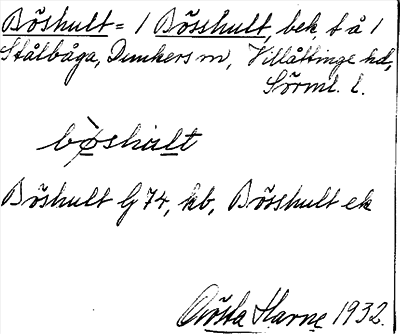 Böshult = 1 Bösshult, bek, t å 1
Stålbåga, Dunkers sn, Villåttinge hd,
Sörml. l.
bø̀shult
Böshult G 74, kb, Bösshult ek
Gösta Harne 1932.